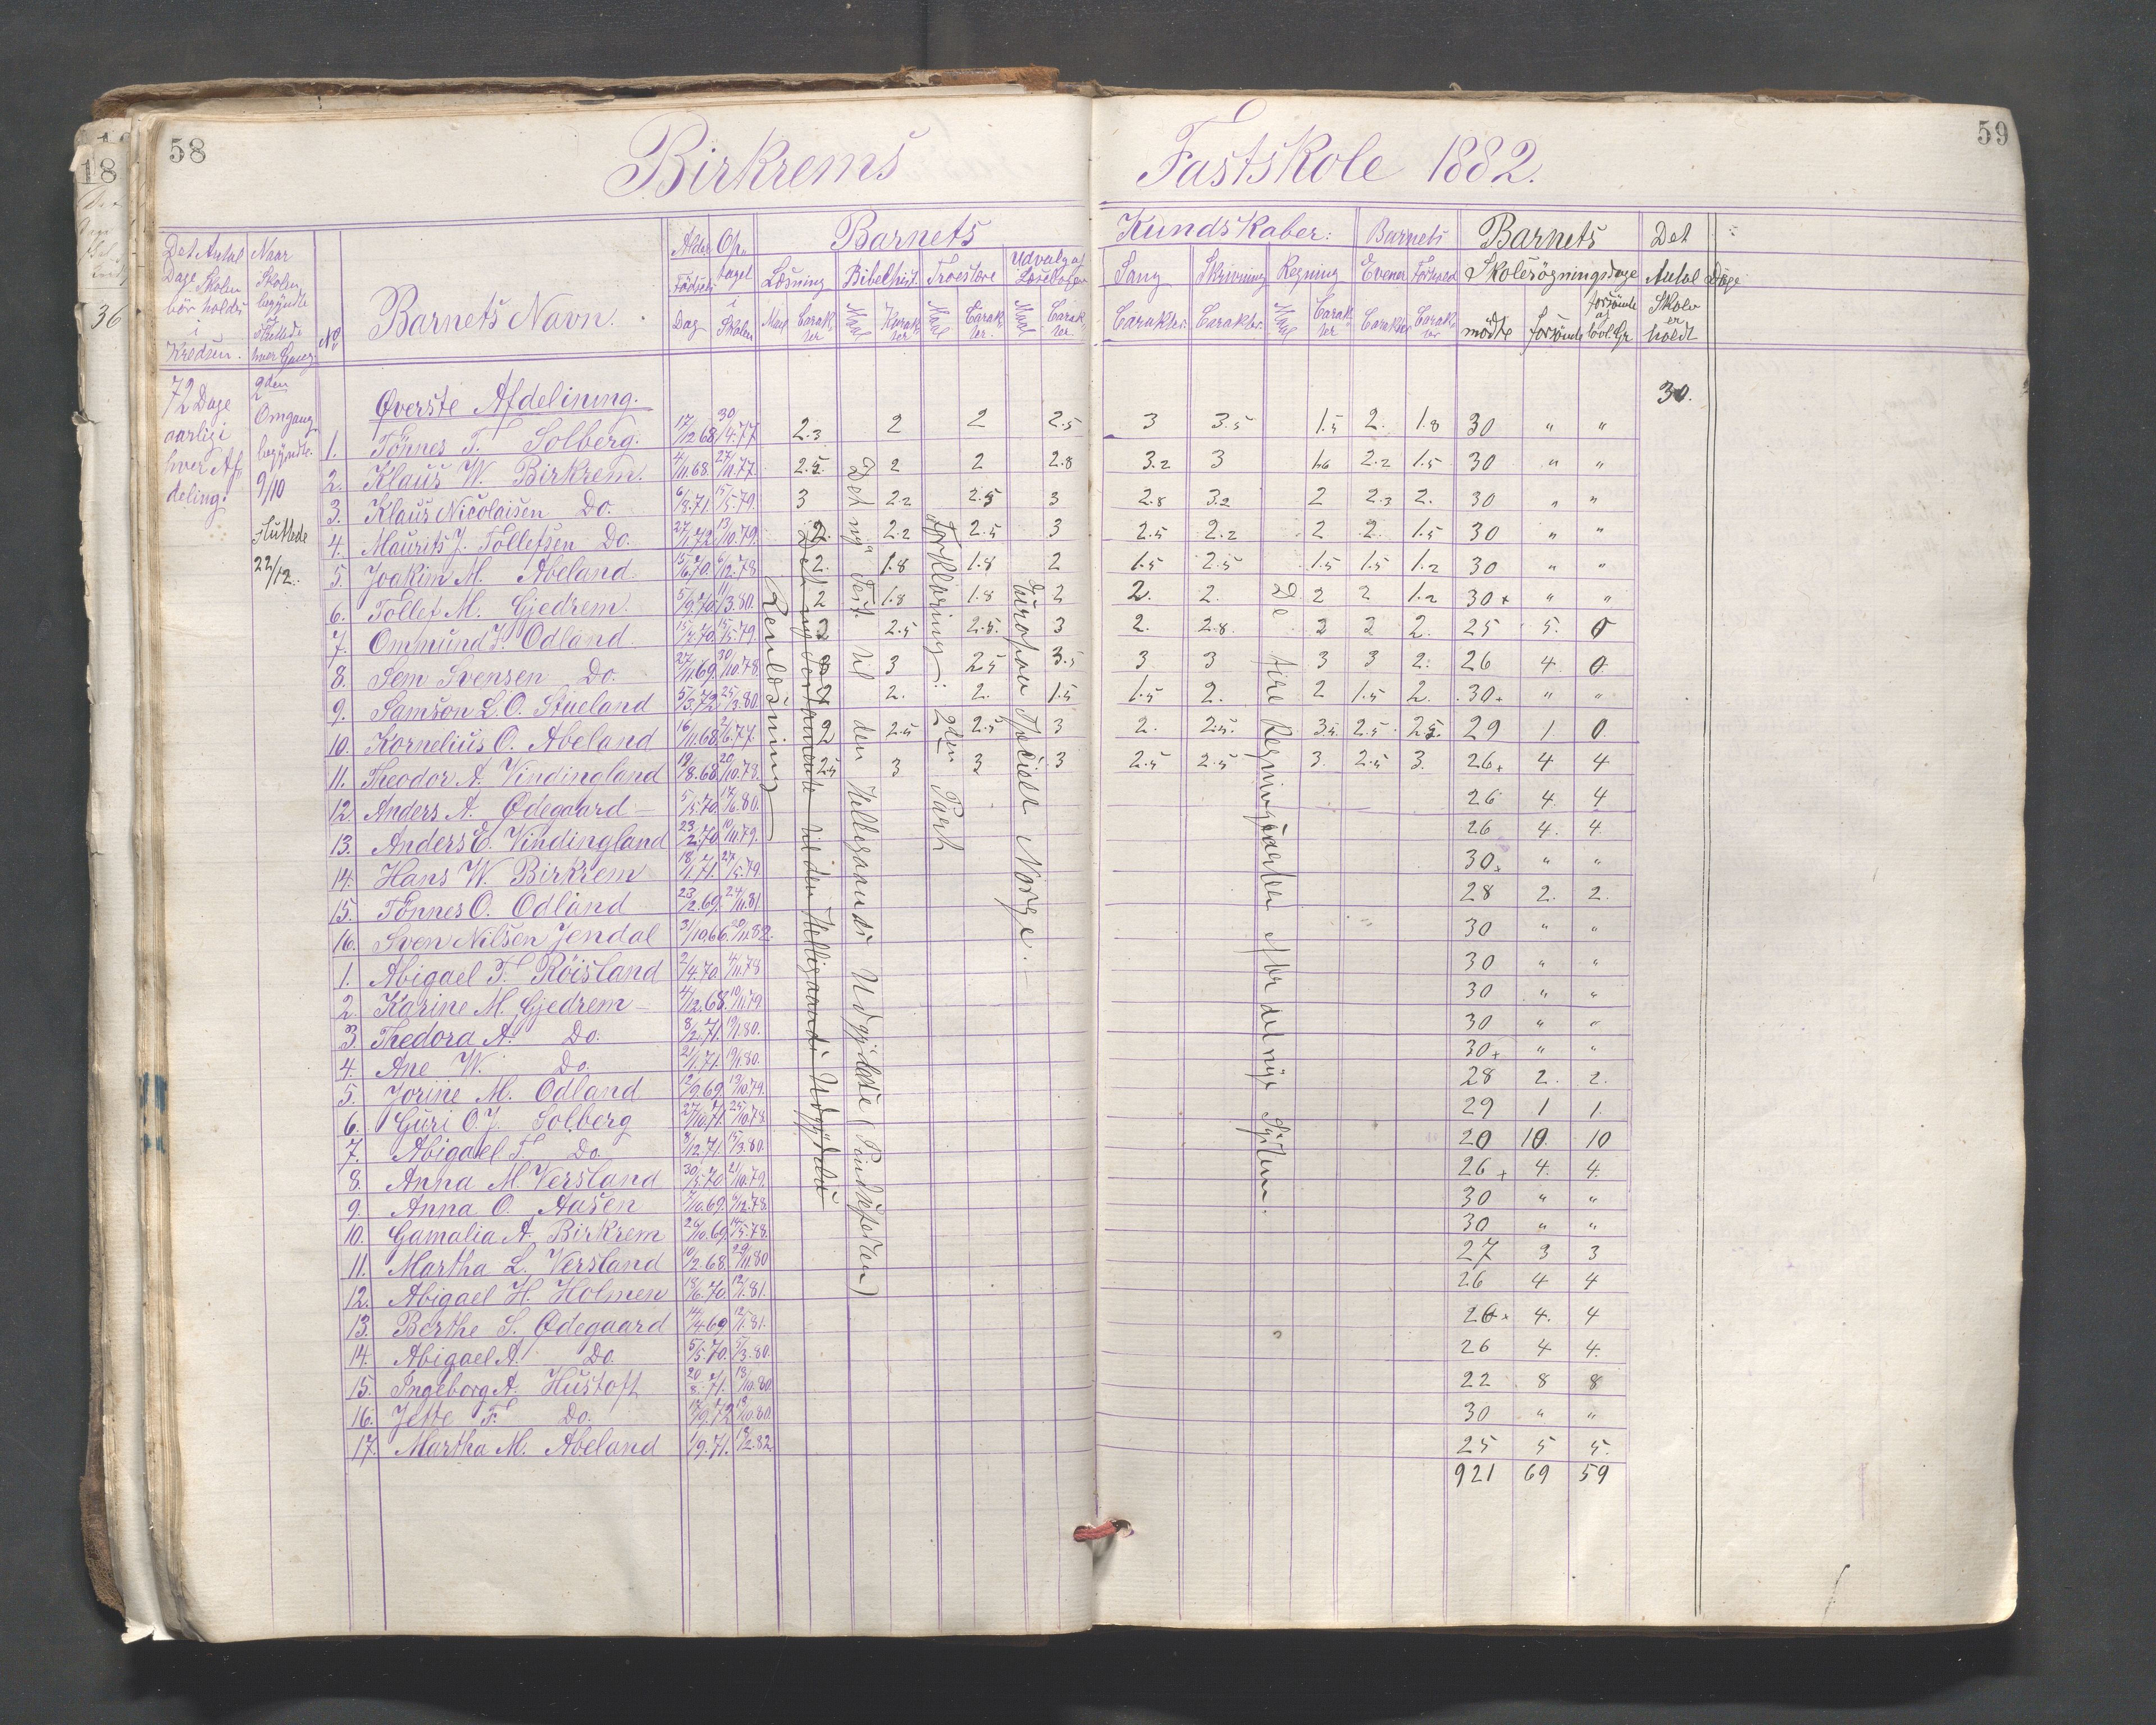 58
59
Birkrems Fastskole 1882.
Det Antal Dage Skolen bör holdes i Kredsen.
Naar Skolen begyndte og sluttede hver Gang
No
Barnets Navn.
Alder Födsels Dag
Optaget i Skolen
Barnets Kundskaber:
Læsning Maal Carakter
Bibelhist. Maal Karakter
Troeslære Maal Carakter
Udvalg af Læsebogen Maal Carakter
Sang Carakter.
Skrivning Carakter.
Regning Maal Carakter
Barnets Evener Carakter Forhold Carakter
Barnets Skolesögningsdage mödte forsömte forsömte af lovl. Gr
Det Antal Dage Skole er holdt
72 Dage aarlig i hver Afdeling.
2den Omgang begyndte 9/10 Sluttede 22/12.
Øverste Afdelining.
30.
1. Tönnes T. Solberg. 17/12 68 30/4.77 2.3 2 2 2.5 3 3.5 1.5 2. 1.8 30 " "
2. Klaus W. Birkrem. 4/11.68. 27/11.77 2.5. 2 2 2.8 3.2 3 2.2 1.5 30 " "
3. Klaus Nicolaisen Do. 6/8.71. 15/5.79. 3 2.2 2.5 3 2.8 3.2 2 2.3 2. 30 " "
4. Maurits J. Tollefsen Do. 27/1.72. 13/10.79. 2. 2.2 2.5 3 2.5 2.2 2 2. 1.5 30 " "
5. Joakim M. Abeland 15/6.70. 6/12.78 2. 1.8 1.8 2 1.5 2.5 1.5 1.5 1.2 30 " "
6. Tollef M. Gjedrem. 5/9.70. 11/3.80. 2 1.8 1.8 2 2. 2. 2 2 1.2 30+ " "
7. Ommund F. Odland. 15/2.70. 15/5.79. 2 2.5 2.5. 3 2. 2.8. 2 2 2. 25 5. 0
8. Sem Svensen Do. 27/11.69. 30/10.78. 3 2.5 3.5 3 3 3 3 2. 26 4. 0.
9. Samson L.O. Stueland 5/3.72. 25/3.80. 2 2. 2. 1.5 1.5 2. 2 1.5 2. 30+ " "
10. Kornelius O. Abeland 16/11.68. 2/6.77. 2 2.5 2.5 3 2. 2.5. 3.5. 2.5 2.5. 29 1 0
11. Theodor A. Vindingland 19/8.68. 20/10.78. 2.5 3 3 3 2.5 2.5 3. 2.5 3. 26+ 4 4
12. Anders A. Ødegaard 5/5.70. 17/6.80. 26 4. 4
13. Anders E. Vindingland 23/2.70. 10/11.79. 26 4. 4.
14. Hans W. Birkrem 18/1.71. 27/5.79 30+ " "
15. Tönnes O. Odland 23/2.69. 24/11.81. 28 2. 2.
16. Sven Nilsen Jendal 3/10.66. 30 " "
1. Abigael T. Röisland 2/4.70. 4/11.78 30 " "
2. Karine M. Gjedrem 4/12.68. 10/11.79 30 " "
3. Thedora A. Do. 8/2.71. 19/1.80. 30 " "
4. Ane W. Do. 21/1.71. 19/1.80. 30+ " "
5. Jorine M. Odland 12/9.69. 13/10.79. 28 2. 2.
6. Guri O.J. Solberg 27/10.71. 25/10.78. 29 1 1.
7. Abigael T. Do. 8/12.71. 15/3.80. 20 10. 10
8. Anna M Versland 30/5.70 21/10.79. 26+ 4. 4.
9. Anna O. Aasen 7/10.69. 6/12.78. 30 " "
10. Gamalia A. Birkrem 26/10.69. 14/5.78. 30 " "
11. Martha L. Versland 10/2.68 29/11.80 27 3 3
12. Abigael H. Holmen 18/6.70. 12/1.81. 26 4 4
13. Berthe S. Ødegaard 14/4 69 12/1.81. 26+ 4. 4
14. Abigael A. Do. 5/5.70. 5/3.80. 26 4 4.
15. Ingeborg A. Hustoft 20/8.71. 18/10.80. 22 8 8
16. Jette F. Do. 17/9.72 18/10.80. 30 " "
17. Martha M. Abeland 1/9.71. 18/2.82. 25 5 5.
921 69 59
Renlæsning
Det nye Testamente til den Helligaands Udgydelse
Det nye Test. til den Helligaands Udgydelse (Pindsefesten)
Forklaring: 2den Part
Europa Specielt Norge.
De fire Regningsarter efter det nye System.